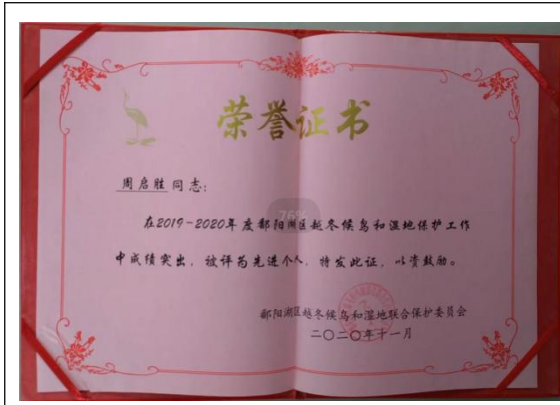 荣誉证书
周启胜同志：
76%
在2019-2020年度鄱阳湖区越冬候鸟和湿地保护工作
中成绩突出，被评为先进个人，特发此证，以资鼓励。
鄱阳湖区越冬候鸟和湿地联合保护委员会
二〇二〇年十一月